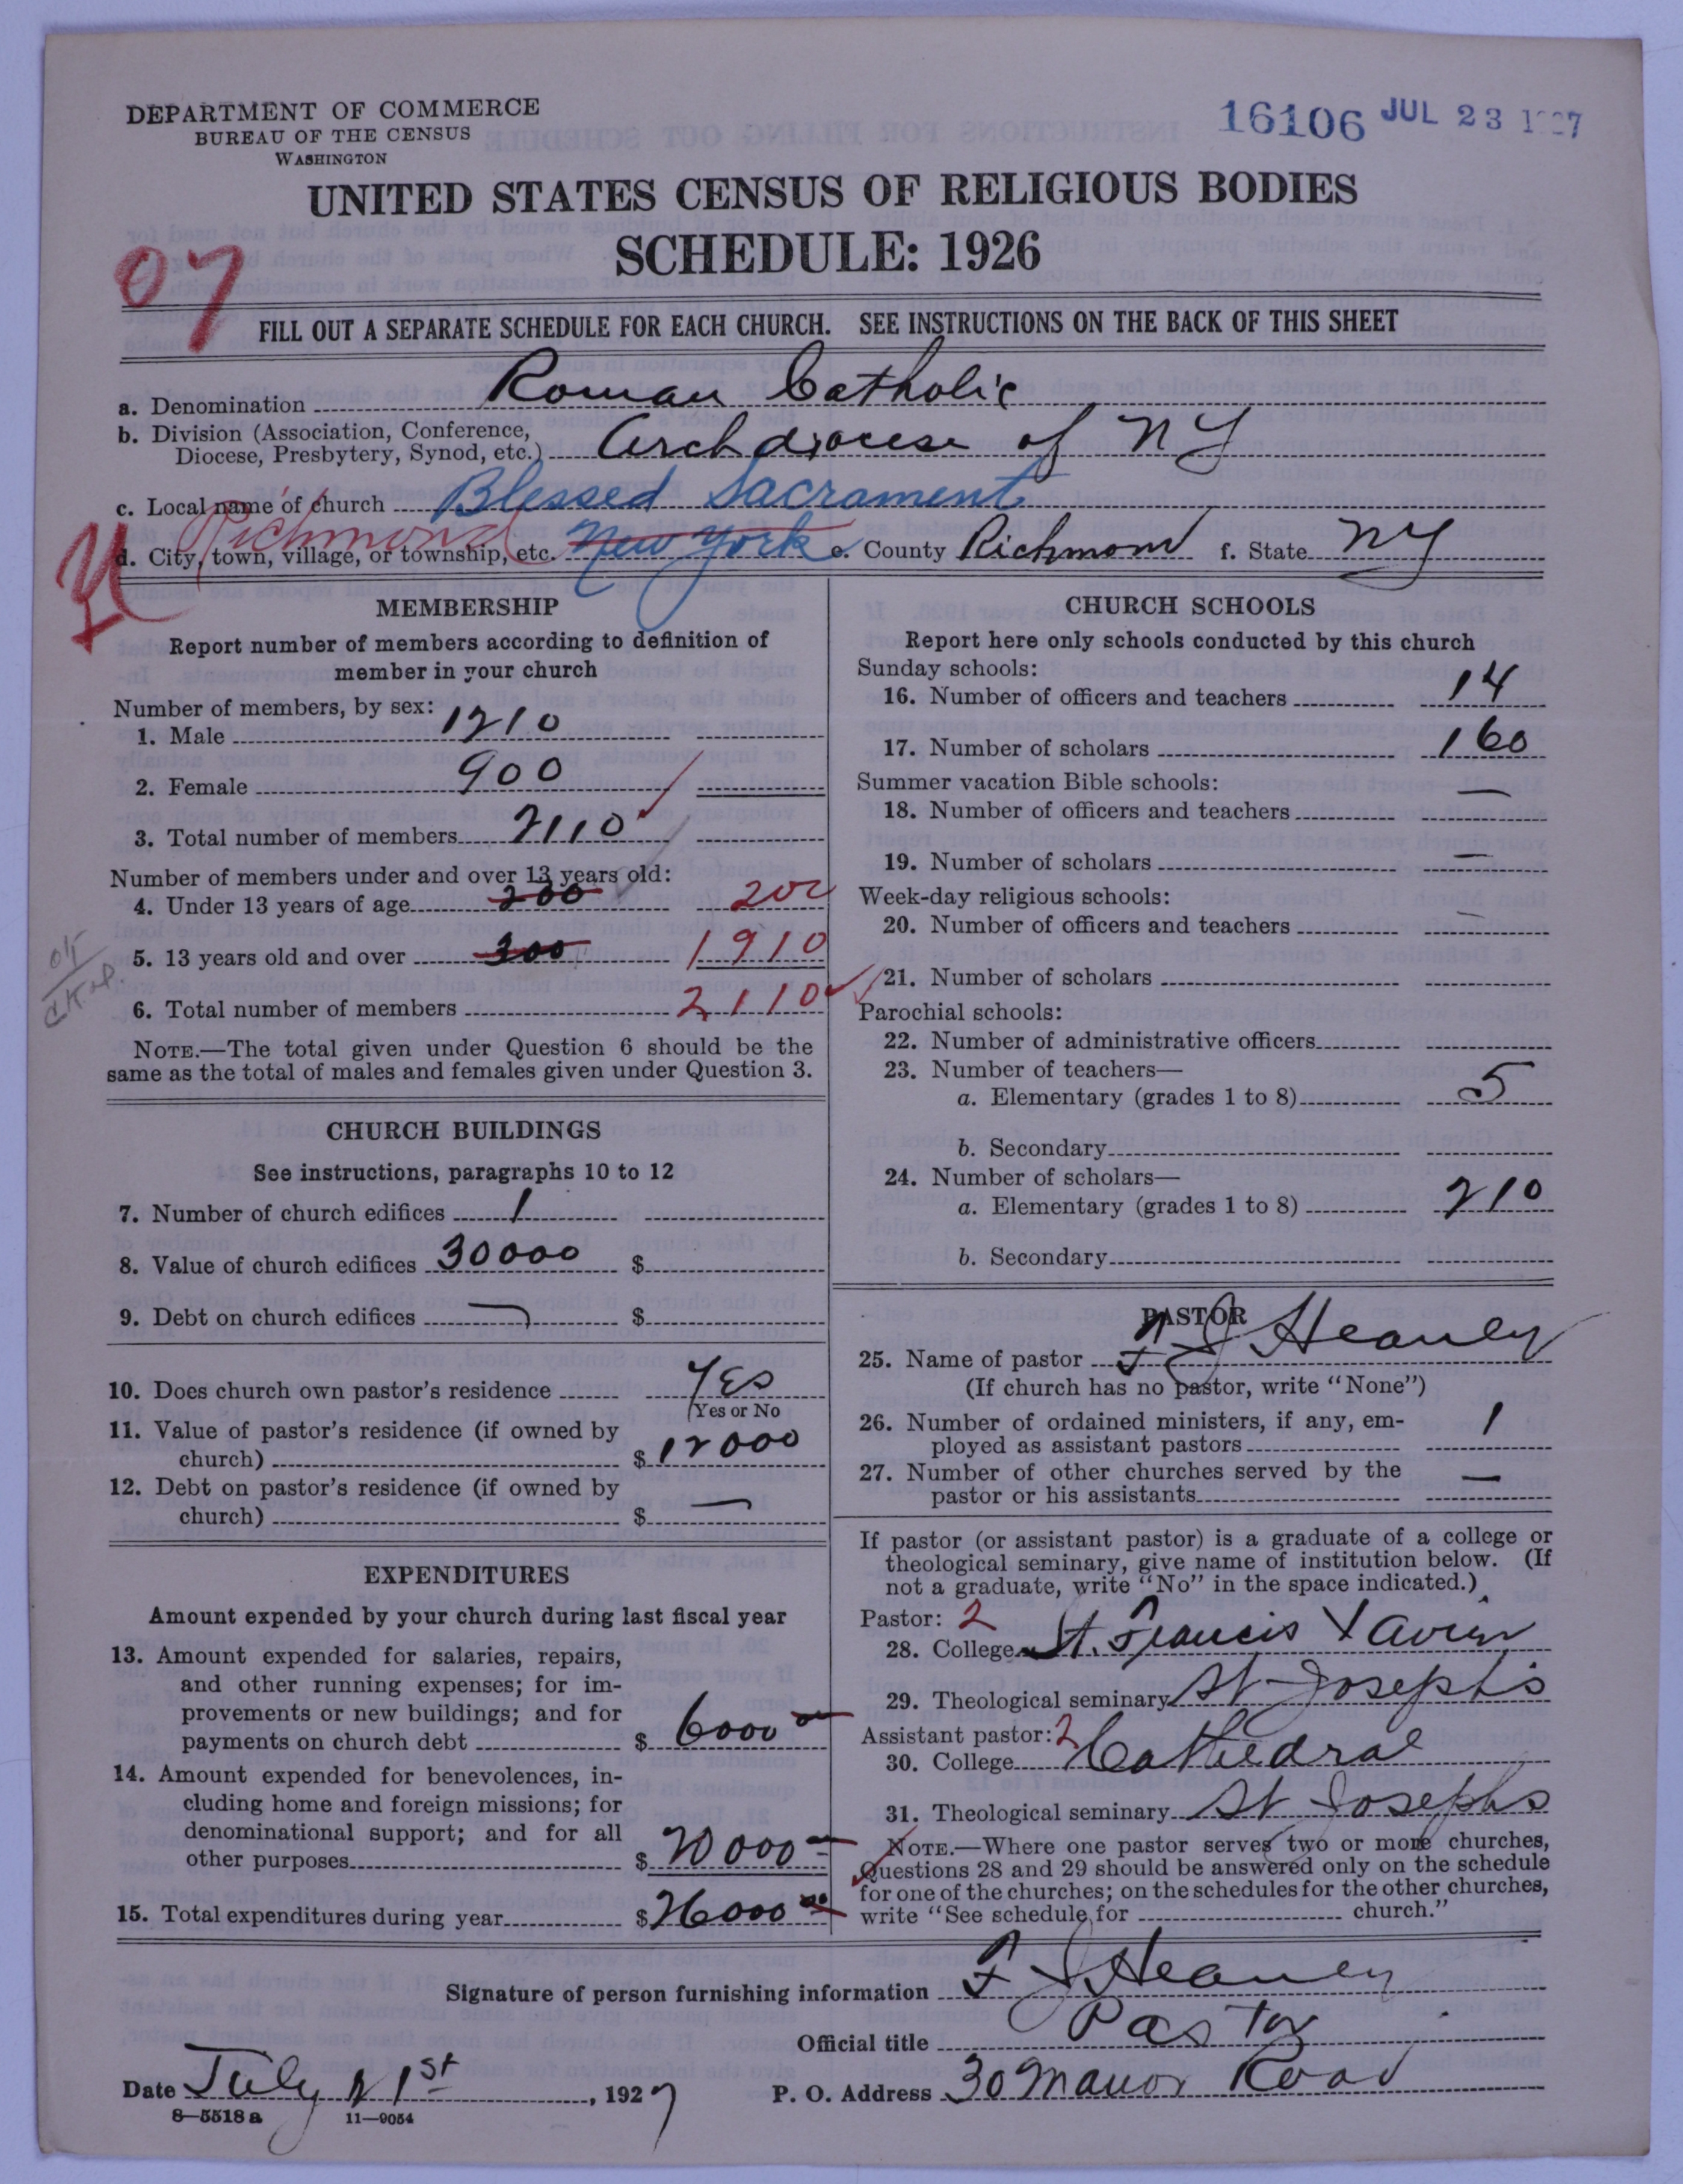 DEPARTMENT OF COMMERCE
BUREAU OF THE CENSUS
WASHINGTON
16106 JUL 23 1927
UNITED STATES CENSUS OF RELIGIOUS BODIES
SCHEDULE: 1926
07
FILL OUT A SEPARATE SCHEDULE FOR EACH CHURCH. SEE INSTRUCTIONS ON THE BACK OF THIS SHEET
a. Denomination Roman Catholic
b. Division (Association, Conference,
Diocese, Presbytery, Synod, etc.) Archdiocese of NY
c. Local name of church Blessed Sacrament
Richmond
d. City, town, village, or township, etc. New York e. County Richmond f. State NY
MEMBERSHIP
Report number of members according to definition of
member in your church
Number of members, by sex:
1. Male 1210
2. Female 900
3. Total number of members 2110
Number of members under and over 13 years old:
4. Under 13 years of age 200 200
5. 13 years old and over 300 1910
6. Total number of members 2110
NOTE.—The total given under Question 6 should be the
same as the total of males and females given under Question 3.
CHURCH BUILDINGS
See instructions, paragraphs 10 to 12
7. Number of church edifices 1
8. Value of church edifices 30000 $
9. Debt on church edifices — $
10. Does church own pastor's residence Yes
Yes or No
11. Value of pastor's residence (if owned by
church) $ 12000
12. Debt on pastor's residence (if owned by
church) $ —
EXPENDITURES
Amount expended by your church during last fiscal year
13. Amount expended for salaries, repairs,
and other running expenses; for im-
provements or new buildings; and for
payments on church debt $ 6000
14. Amount expended for benevolences, in-
cluding home and foreign missions; for
denominational support; and for all
other purposes $ 20000
15. Total expenditures during year $ 26000
CHURCH SCHOOLS
Report here only schools conducted by this church
Sunday schools:
16. Number of officers and teachers 14
17. Number of scholars 160
Summer vacation Bible schools:
18. Number of officers and teachers —
19. Number of scholars —
Week-day religious schools:
20. Number of officers and teachers —
21. Number of scholars
Parochial schools:
22. Number of administrative officers
23. Number of teachers—
a. Elementary (grades 1 to 8) 5
b. Secondary
24. Number of scholars—
a. Elementary (grades 1 to 8) 210
b. Secondary
PASTOR
25. Name of pastor F J Heaney
(If church has no pastor, write "None")
26. Number of ordained ministers, if any, em-
ployed as assistant pastors 1
27. Number of other churches served by the
pastor or his assistants —
If pastor (or assistant pastor) is a graduate of a college or
theological seminary, give name of institution below. (If
not a graduate, write "No" in the space indicated.)
Pastor: 2
28. College St. Francis Xavier
29. Theological seminary St Josephs
Assistant pastor: 2
30. College Cathedral
31. Theological seminary St Josephs
NOTE.—Where one pastor serves two or more churches,
Questions 28 and 29 should be answered only on the schedule
for one of the churches; on the schedules for the other churches,
write "See schedule for church."
Signature of person furnishing information F J Heaney
Official title Pastor
Date July 21st, 1927 P. O. Address 30 Manor Road
8—5518 a 11—9054